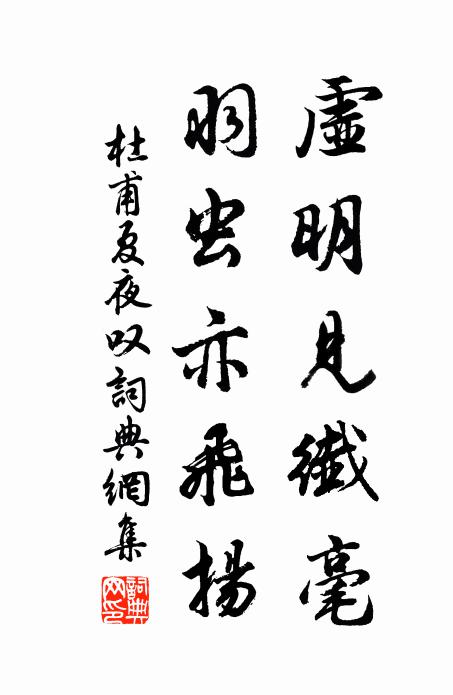 虛明見纖毫
羽虫亦飛揚
杜甫夏夜叹詞典網集
詞典网印